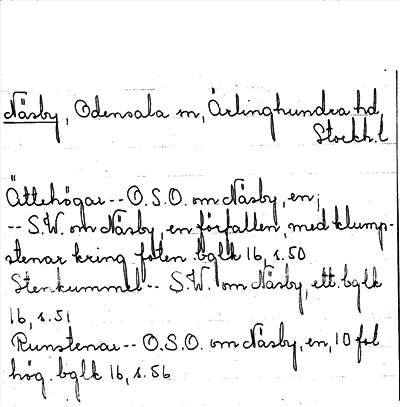 Näsby, Odensala sn, Ärlinghundra hd,
Stockh.l
Ättehögar -- O.S.O. om Näsby, en;
-- S.W. om Näsby, en förfallen, med klump-
stenar kring foten. bglk 16, s.50
Stenkummel -- S.W. om Näsby, ett. bglk
16, s.51
Runstenar -- O.S.O. om Näsby, en, 10 fot
hög. bglk 16, s.56